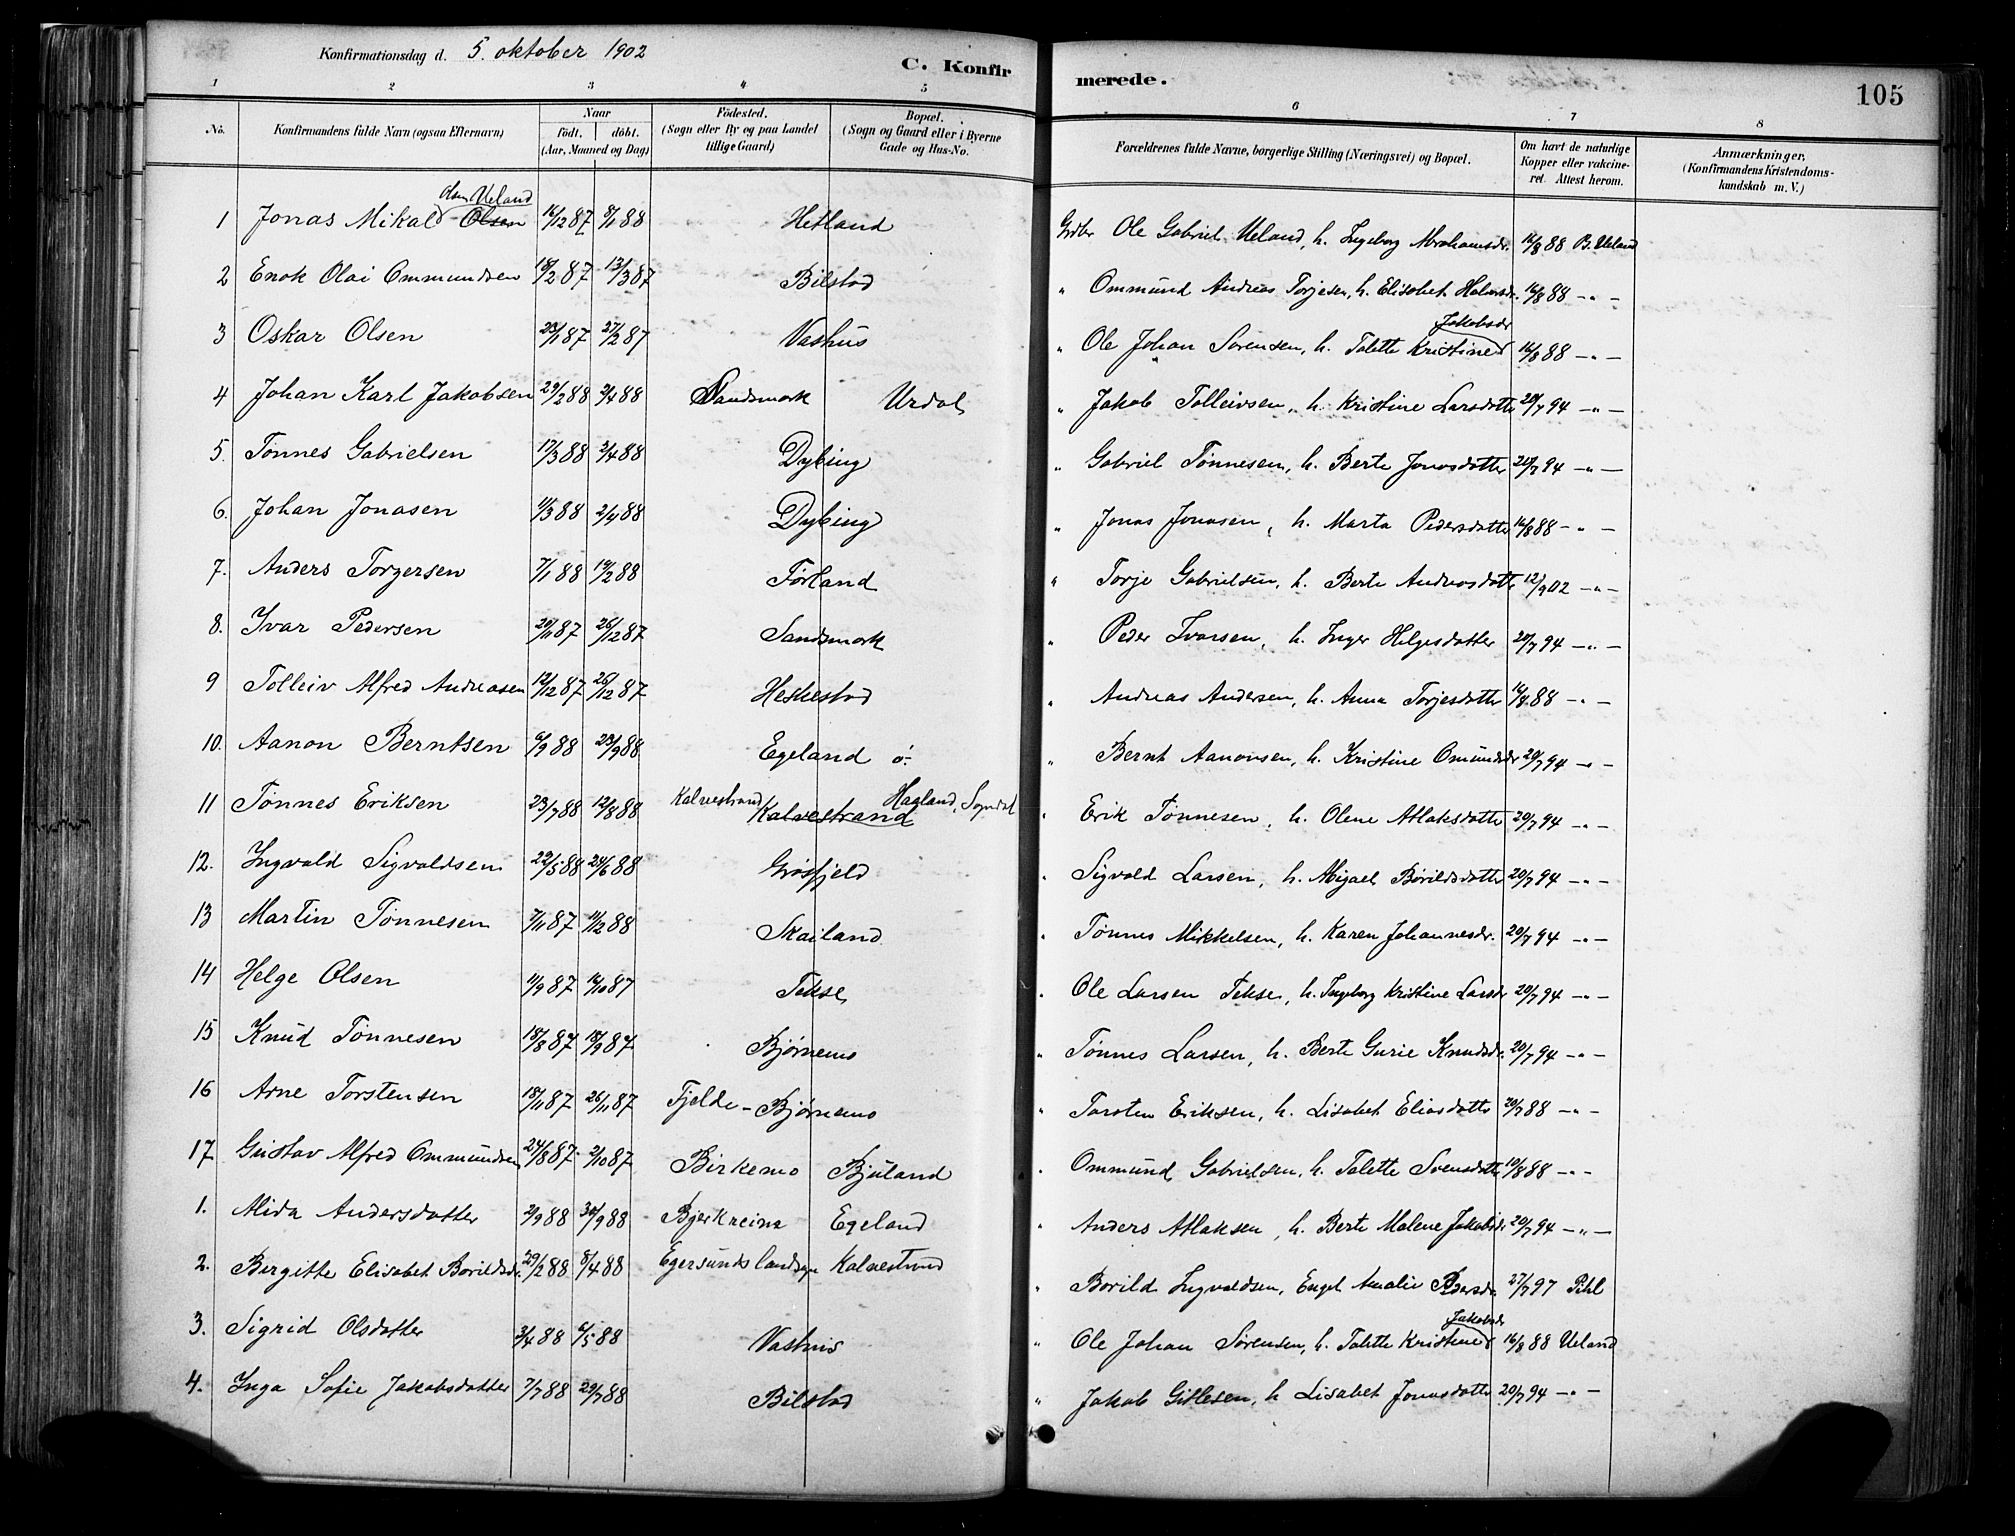 Konfirmationsdag d. 5. oktober 1902
C. Konfir merede. 105
1 2 3 4 5 6 7 8
No. Konfirmandens fulde Navn (ogsaa Efternavn) Naar født. døbt. (Aar, Maaned og Dag) Fødested. (Sogn eller By og paa Landet tillige Gaard) Bopæl. (Sogn og Gaard eller i Byerne Gade og Hus-No. Forældrenes fulde Navne, borgerlige Stilling (Næringsvei) og Bopæl. Om havt de naturlige Kopper eller vakcineret. Attest herom. Anmærkninger, (Konfirmandens Kristendomskundskab m. V.)
Olsen Ueland
1 Jonas Mikal Olsen 16/12 87 8/1 88 Hetland Grdbr Ole Gabriel Ueland, h. Ingeborg Abrahamsdr. 16/8 88 B. Ueland
2 Enok Olai Ommundsen 18/2 87 13/3 87 Bilstad " Ommund Andreas Torjesen, h. Elisabet Halvorsdr. 16/8 88 -"-
Jakobsdr
3 Oskar Olsen 23/1 87 27/2 87 Vashus " Ole Johan Sørensen, h. Talette Kristine 16/8 88 -"-
4 Johan Karl Jakobsen 29/2 88 2/4 88 Sandsmark Urdal " Jakob Tolleivsen, h. Kristine Larsdotter 20/7 94 -"-
5. Tønnes Gabrielsen 17/3 88 2/4 88 Dybing " Gabriel Tønnesen, h. Berte Jonasdotter 20/7 94 -"-
6. Johan Jonasen 11/3 88 2/4 88 Dybing " Jonas Jonasen, h. Marta Pedersdotter 16/8 88 -"-
7. Anders Torgersen 7/1 88 19/2 88 Førland " Torje Gabrielsen, h. Berte Andreasdott 12/9 02 -"-
8. Ivar Pedersen 20/11 87 26/12 87 Sandsmark " Peder Ivarsen, h. Inger Helgesdotter 20/7 94 -"-
9 Tolleiv Alfred Andreasen 12/12 87 26/12 87 Heskestad " Andreas Andersen, h. Anna Torjesdotter 16/8 88 -"-
10. Aanon Berntsen 6/9 88 23/9 88 Egeland ø. " Bernt Aanonsen, h. Kristine Omundsdr 20/7 94 -"-
11 Tønnes Eriksen 23/7 88 12/8 88 Kalvestrand Kalvestrand Hagland, Sogndal " Erik Tønnesen, h. Olene Atlaksdotter 20/7 94 -"-
12. Ingvald Sigvaldsen 22/5 88 24/6 88 Grøsfjeld " Sigvald Larsen, h. Abigael Børildsdotter 20/7 94 -"-
13 Martin Tønnesen 7/11 87 11/2 88 Skailand " Tønnes Mikkelsen, h. Karen Johannesdr. 20/7 94 -"-
14 Helge Olsen 11/9 87 16/10 87 Tekse " Ole Larsen Tekse, h. Ingeborg Kristine Larsdr 20/7 94 -"-
15 Knud Tønnesen 18/8 87 18/9 87 Bjørnemo " Tønnes Larsen, h. Berte Gurie Knudsdr. 20/7 94 -"-
16 Arne Torstensen 18/11 87 26/11 87 Fjelde - Bjørnemo " Torsten Eriksen, h. Lisabet Eliasdotter 20/7 88 -"-
17 Gustav Alfred Ommundsen 24/8 87 2/10 87 Birkemo Bjuland " Ommund Gabrielsen, h. Talette Svensdotter 10/8 88 -"-
1. Alida Andersdotter 2/9 88 30/9 88 Bjerkreim Egeland " Anders Atlaksen, h. Berte Malene Jakobsdr 20/7 94 -"-
2. Bergitte Elisabet Børildsdr. 29/2 88 8/4 88 Egersunds landsogn Kalvestrand " Børild Ingvaldsen, Engel Amalie Pedersdr. 27/7 97 Pihl
Jakobsdr
3. Sigrid Olsdotter 3/4 88 6/5 88 Vashus " Ole Johan Sørensen, h. Talette Kristine 16/8 88 Ueland
4. Inga Sofie Jakobsdotter 7/7 88 29/7 88 Bilstad " Jakob Gitlesen, h Lisabet Jonasdotter 20/7 94 -"-